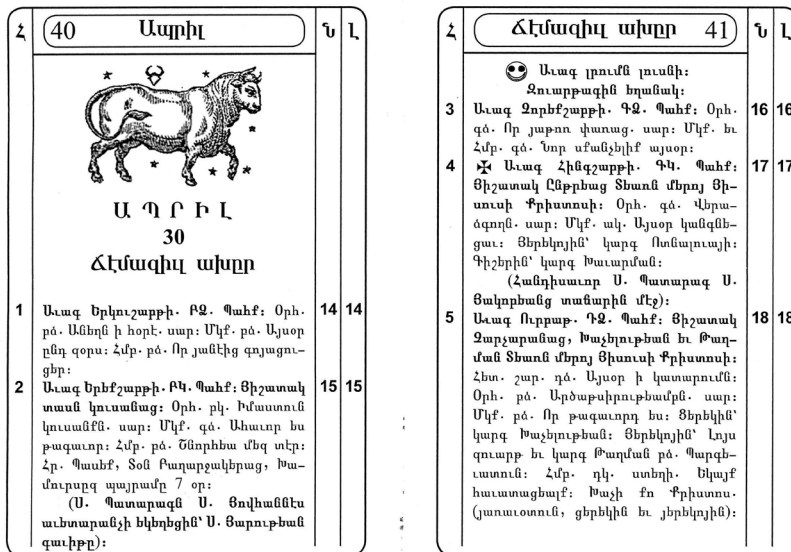 Հ
40
Ապրիլ
Ն
Լ
ԱՊՐԻԼ
30
Ճէմազիւլ ախըր
1
Աւագ Երկուշաբթի. ԲՁ. Պահք: Օրհ.
բձ. Անեղն ի հօրէ. սար: Մկք. բձ. Այսօր
ընդ զօրս: Համբ. բձ. Որ յանէից գոյացու-
ցեր:
14 14
2
Աւագ Երեքշաբթի. ԲԿ. Պահք: Յիշատակ
տասն կուսանաց: Օրհ. բկ. Իմաստուն
կուսանքն. սար: Մկք. գձ. Ահաւոր ես
թագաւոր: Համբ. բձ. Շնորհեա մեզ տէր:
Հր. Պասեք, Տօն Բաղարջակերաց, Խա-
մուրսըզ պայրամը 7 օր:
(Ս. Պատարագն Ս. Յովհաննէս
աւետարանչի եկեղեցին՝ Ս. Յարութեան
գաւիթը):
15 15
Հ
Ճէմազիւլ ախըր
41
Ն
Լ
Աւագ լրումն լուսնի:
Զուարթագին եղանակ:
3
Աւագ Չորեքշաբթի. ԳՁ. Պահք: Օրհ.
գձ. Որ յաթոռ փառաց. սար: Մկք. եւ
Համբ. գձ. Նոր սքանչելիք այսօր:
16 16
4
✠ Աւագ Հինգշաբթի. ԳԿ. Պահք:
Յիշատակ Ընթրեաց Տեառն մերոյ Յի-
սուսի Քրիստոսի: Օրհ. գձ. Վերա-
ձգողն. սար: Մկք. ակ. Այսօր կանգնե-
ցաւ: Յերեկոյին՝ կարգ Ոտնալուայի:
Գիշերին՝ կարգ Խաւարման:
(Հանդիսաւոր Ս. Պատարագ Ս.
Յակոբեանց տաճարին մէջ):
17 17
5
Աւագ Ուրբաթ. ԴՁ. Պահք: Յիշատակ
Չարչարանաց, Խաչելութեան եւ Թաղ-
ման Տեառն մերոյ Յիսուսի Քրիստոսի:
Հետ. շար. դձ. Այսօր ի կատարումն:
Օրհ. բձ. Արծաթսիրութեամբն. սար:
Մկք. բձ. Որ թագաւորդ ես: Ցերեկին՝
կարգ Խաչելութեան: Յերեկոյին՝ Լոյս
զուարթ եւ կարգ Թաղման բձ. Պարգե-
ւատուն: Համբ. դկ. ստեղի. Եկայք
հաւատացեալք: Խաչի քո Քրիստոս.
(յառաւօտուն, ցերեկին եւ յերեկոյին):
18 18